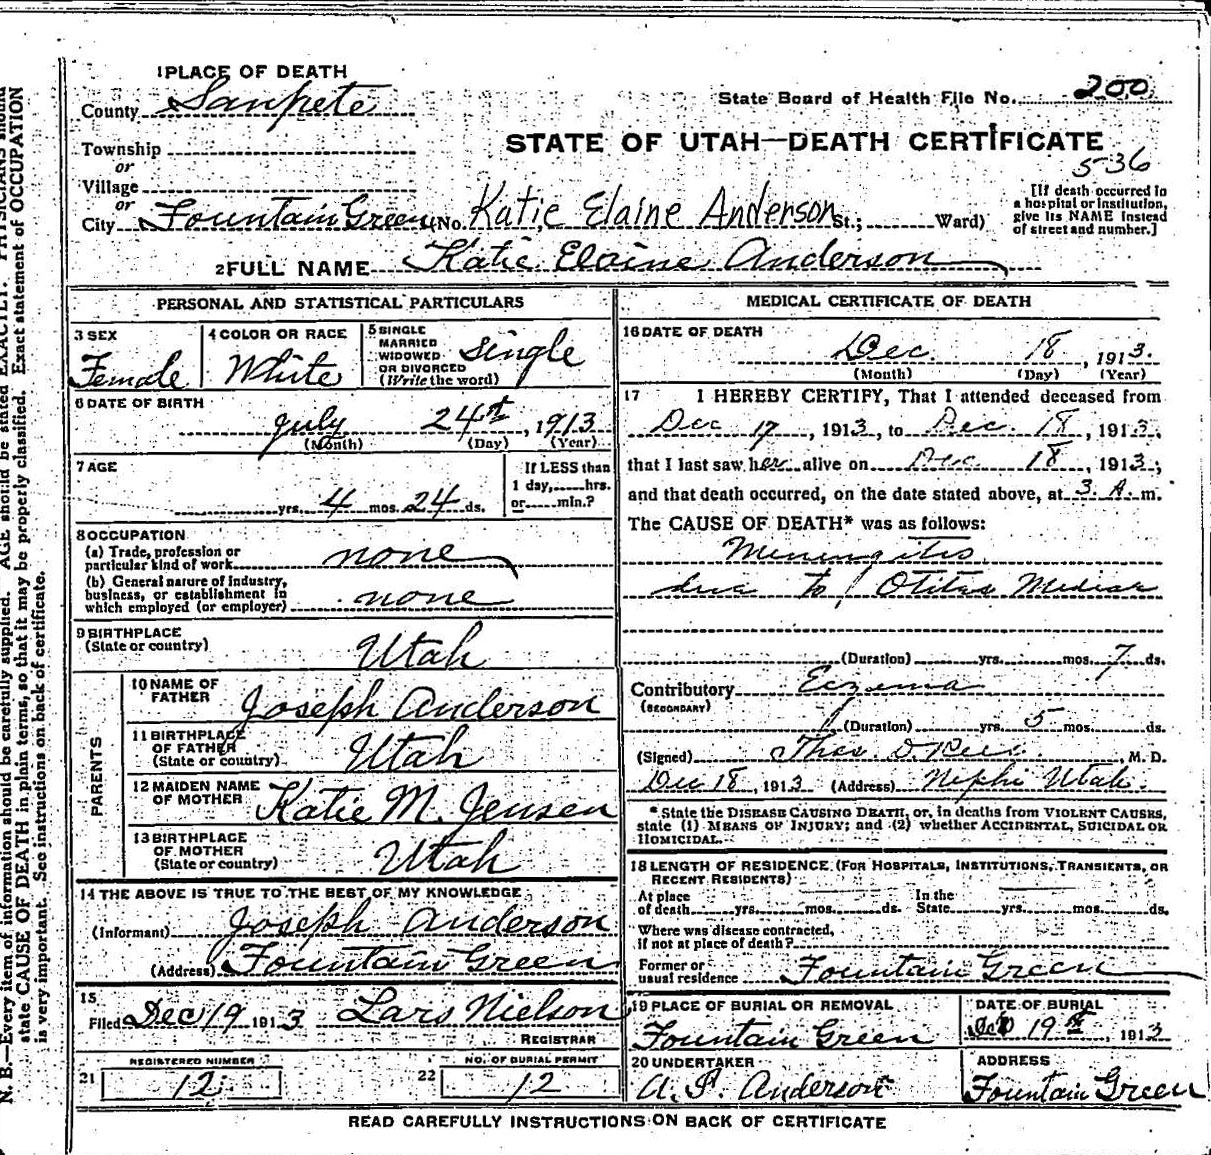 1 PLACE OF DEATH
County Sanpete
State Board of Health File No. 200
Township
STATE OF UTAH—DEATH CERTIFICATE
or
536
Village
or
City Fountain Green (No. Katie Elaine Anderson St.; Ward)
[If death occurred in
a hospital or institution,
give its NAME instead
of street and number.]
2 FULL NAME Katie Elaine Anderson
PERSONAL AND STATISTICAL PARTICULARS
3 SEX
Female
4 COLOR OR RACE
White
5 SINGLE
MARRIED
WIDOWED
OR DIVORCED
(Write the word)
Single
6 DATE OF BIRTH
July 24th, 1913
(Month) (Day) (Year)
7 AGE
yrs. 4 mos. 24 ds.
If LESS than
1 day, hrs.
or min.?
8 OCCUPATION
(a) Trade, profession or
particular kind of work none
(b) General nature of industry,
business, or establishment in
which employed (or employer) none
9 BIRTHPLACE
(State or country) Utah
PARENTS
10 NAME OF
FATHER Joseph Anderson
11 BIRTHPLACE
OF FATHER
(State or country) Utah
12 MAIDEN NAME
OF MOTHER Katie M. Jensen
13 BIRTHPLACE
OF MOTHER
(State or country) Utah
14 THE ABOVE IS TRUE TO THE BEST OF MY KNOWLEDGE
(Informant) Joseph Anderson
(Address) Fountain Green
15
Filed Dec 19 1913 Lars Nielson
REGISTRAR
REGISTERED NUMBER
21 12
NO. OF BURIAL PERMIT
22 12
MEDICAL CERTIFICATE OF DEATH
16 DATE OF DEATH
Dec. 18, 1913.
(Month) (Day) (Year)
17 I HEREBY CERTIFY, That I attended deceased from
Dec 17, 1913, to Dec. 18, 1913,
that I last saw her alive on Dec. 18, 1913,
and that death occurred, on the date stated above, at 3 A. m.
The CAUSE OF DEATH* was as follows:
Meningitis
due to Otitis Mediae
(Duration) yrs. mos. 7 ds.
Contributory Eczema
(SECONDARY)
(Duration) yrs. 5 mos. ds.
(Signed) Thos. D. Rees, M. D.
Dec 18, 1913 (Address) Nephi Utah.
* State the DISEASE CAUSING DEATH, or, in deaths from VIOLENT CAUSES,
state (1) MEANS OF INJURY; and (2) whether ACCIDENTAL, SUICIDAL OR
HOMICIDAL.
18 LENGTH OF RESIDENCE (FOR HOSPITALS, INSTITUTIONS, TRANSIENTS, OR
RECENT RESIDENTS)
At place In the
of death yrs. mos. ds. State yrs. mos. ds.
Where was disease contracted,
if not at place of death?
Former or
usual residence Fountain Green
19 PLACE OF BURIAL OR REMOVAL
Fountain Green
DATE OF BURIAL
19th, 1913
20 UNDERTAKER
A. P. Anderson
ADDRESS
Fountain Green
READ CAREFULLY INSTRUCTIONS ON BACK OF CERTIFICATE
N. B.—Every item of information should be carefully supplied. AGE should be stated EXACTLY. PHYSICIANS should
state CAUSE OF DEATH in plain terms, so that it may be properly classified. Exact statement of OCCUPATION
is very important. See instructions on back of certificate.